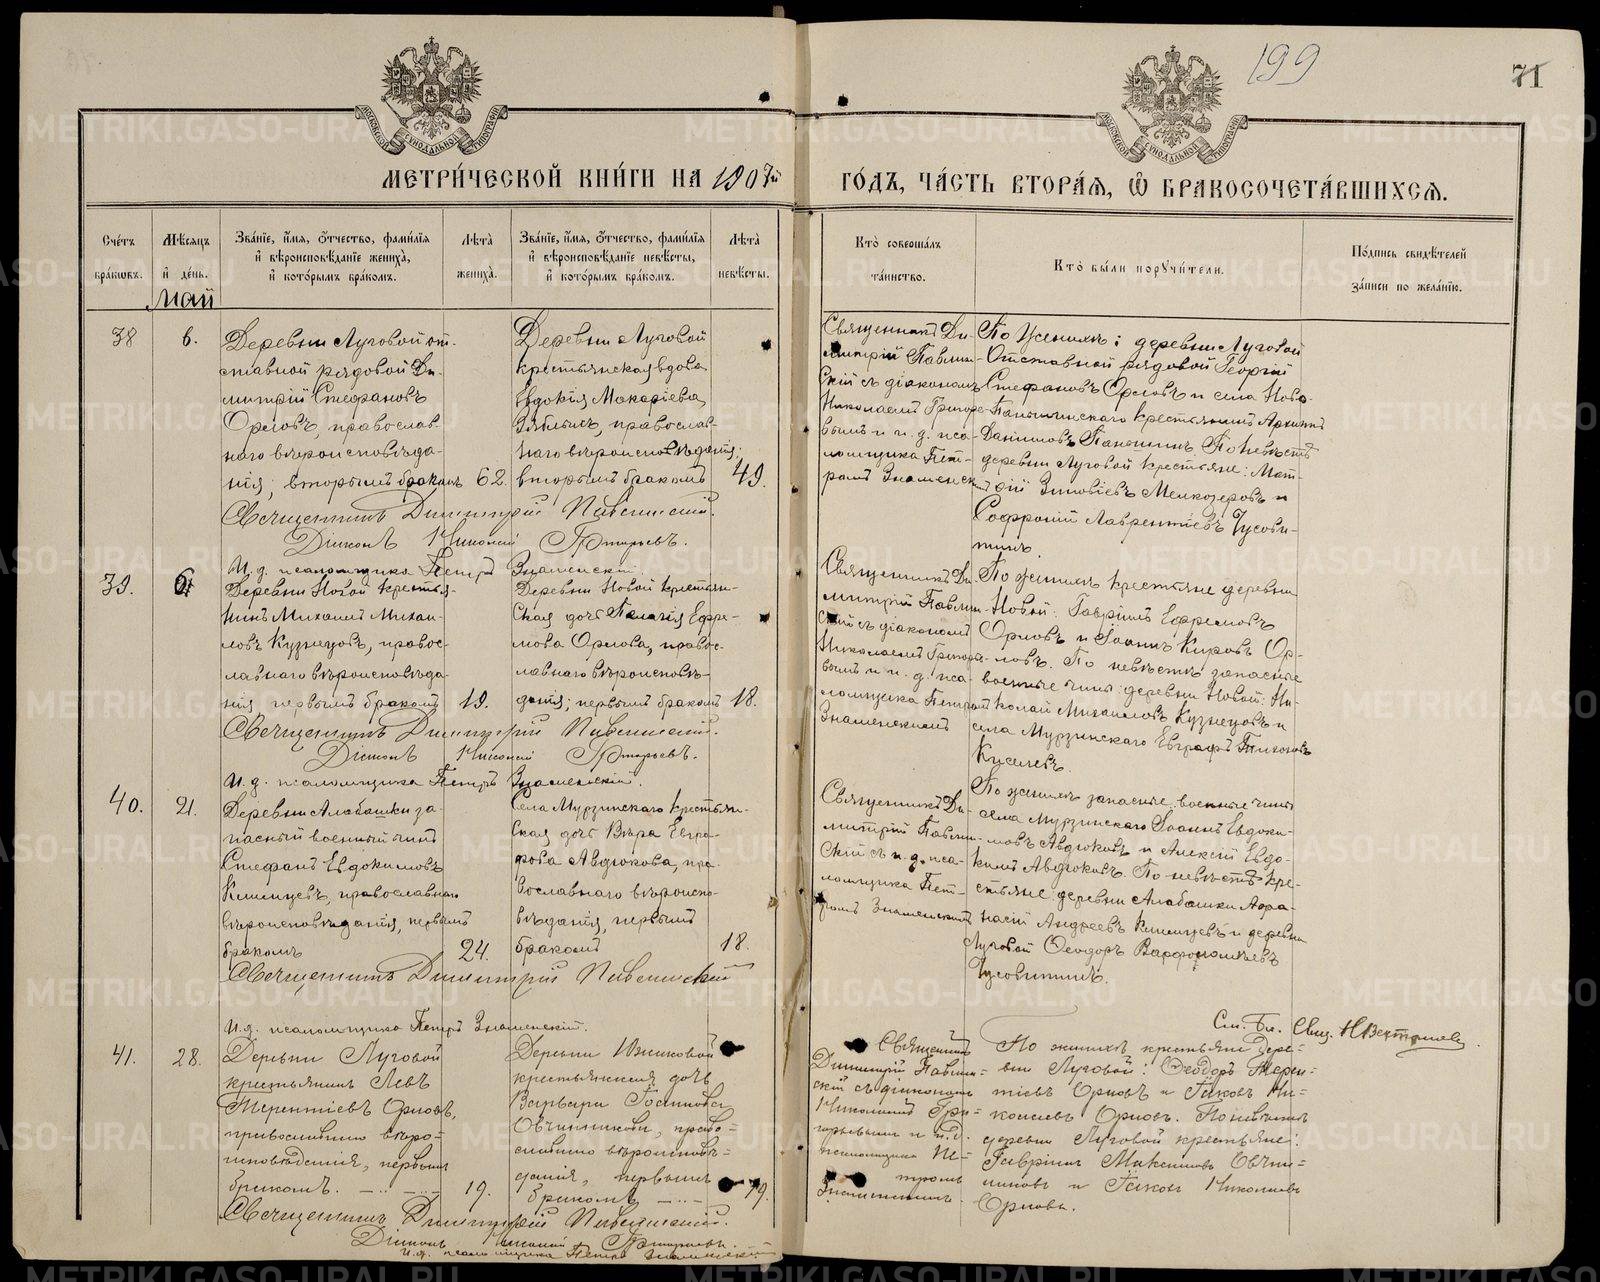 199
71
МЕТРИЧЕСКОЙ КНИГИ НА 1907й
ГОДЪ, ЧАСТЬ ВТОРАЯ, Ѿ БРАКОСОЧЕТАВШИХСЯ.
Счетъ браковъ.
Мѣсяцъ и день.
Званіе, имя, отчество, фамилія и вѣроисповѣданіе жениха, и которымъ бракомъ.
Лѣта жениха.
Званіе, имя, отчество, фамилія и вѣроисповѣданіе невѣсты, и которымъ бракомъ.
Лѣта невѣсты.
Кто совершалъ таинство.
Кто были поручители.
Подпись свидѣтелей записи по желанію.
Май
38
6.
Деревни Луговой от-
ставной рядовой Ди-
митрій Стефановъ
Орловъ, православ-
наго вѣроисповѣда-
нія; вторымъ бракомъ
62.
Деревни Луговой
крестьянская вдова
Евдокія Макаріева
православ-
наго вѣроисповѣданія;
вторымъ бракомъ
49.
Священникъ Ди-
митрій Павлин-
скій съ діакономъ
Николаемъ Григорье-
вымъ и и. д. пса-
ломщика Пет-
ромъ Знаменск
По женихѣ: деревни Луговой
Отставной рядовой Георгій
Стефановъ Орловъ и села Ново-
крестьянинъ
Даніиловъ По невѣстѣ
деревни Луговой крестьяне: Мат-
ѳій Зиновіевъ Мелкозеровъ и
Софроній Лаврентіевъ Чусови-
тинъ.
Священникъ Димитрій Павлинскій.
Діаконъ Николай Григорьевъ.
И. д. псаломщика Петръ Знаменскій.
39.
6
Деревни Новой крестья-
нинъ Михаилъ Михаи-
ловъ Кузнецовъ, правос-
лавнаго вѣроисповѣда-
нія, первымъ бракомъ
19.
Деревни Новой крестьян-
ская дочь Пелагія Ефре-
мова Орлова, правос-
лавнаго вѣроисповѣ-
данія; первымъ бракомъ
18.
Священникъ Ди-
митрій Павлин-
скій съ діакономъ
Николаемъ Григорье-
вымъ и и. д. пса-
ломщика Петромъ
Знаменскимъ
По женихѣ крестьяне деревни
Новой: Гавріилъ Ефремовъ
Орловъ и Іоаннъ Кировъ Ор-
ловъ. По невѣстѣ запасные
военные чины: деревни Новой: Ни-
колай Михаиловъ Кузнецовъ и
села Мурзинскаго Евграфъ Тихоновъ
Киселевъ.
Священникъ Димитрій Павлинскій.
Діаконъ Николай Григорьевъ.
И. д. псаломщика Петръ Знаменскій.
40.
21.
Деревни Алабашки за-
пасный военный чинъ
Стефанъ Евдокимовъ
православнаго
вѣроисповѣданія, первымъ
бракомъ
24.
Села Мурзинскаго крестьян-
ская дочь Вѣра Евгра-
фова Авдюкова, пра-
вославнаго вѣроиспо-
вѣданія, первымъ
бракомъ
18.
Священникъ Ди-
митрій Павлин-
скій съ и. д. пса-
ломщика Пет-
ромъ Знаменскимъ
По женихѣ запасные военные чины
села Мурзинскаго Іоаннъ Евдоки-
мовъ Авдюковъ и Алексій Евдо-
кимъ Авдюковъ. По невѣстѣ кре-
стьяне: деревни Алабашки Аѳа-
насій Андреевъ и деревни
Луговой Ѳеодоръ Варфоломеевъ
Чусовитинъ.
Священникъ Димитрій Павлинскій
И. д. псаломщика Петръ Знаменскій.
См. Бл. Свящ.
41.
28.
Деревни Луговой
крестьянинъ Левъ
Терентіевъ Орловъ,
православнаго вѣро-
исповѣданія, первымъ
бракомъ.
19.
Деревни
крестьянская дочь
Варвара Іоаннова
Овчинникова, право-
славнаго вѣроисповѣ-
данія, первымъ
бракомъ
19.
Священникъ
Димитрій Павлин-
скій съ діакономъ
Николаемъ Гри-
горьевымъ и и.д.
псаломщика Пе-
тромъ
Знаменскимъ.
По женихѣ крестьяне дере-
вни Луговой: Ѳеодоръ Терен-
тіевъ Орловъ и Іаковъ Ни-
колаевъ Орловъ. По невѣстѣ
деревни Луговой крестьяне:
Гавріилъ Максимовъ Овчин-
никовъ и Іаковъ Николаевъ
Орловъ.
Священникъ Димитрій Павлинскій.
Діаконъ Николай Григорьевъ.
И.д. псаломщика Петръ Знаменскій